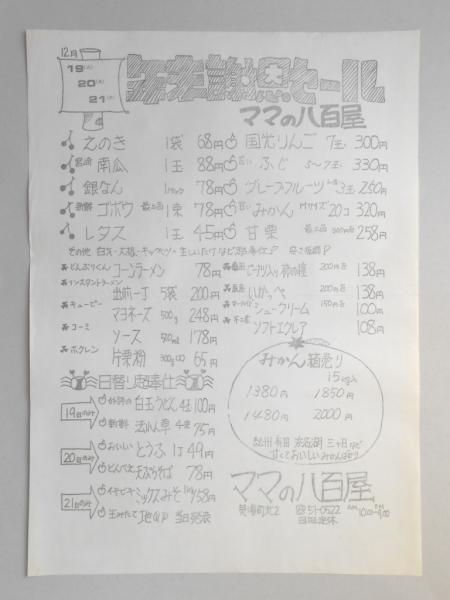 12月
19(火)
20(水)
21(木)
年末謝恩セール
ママの八百屋
えのき 1袋 68円
国光りんご 7玉 300円
宮崎 南瓜 1玉 88円
甘い ふじ 5〜7玉 330円
銀なん 1パック 78円
グレープフルーツ 3玉 250円
新鮮 ゴボウ 最上品 1束 78円
甘い みかん Mサイズ 20コ 320円
レタス 1玉 45円
甘栗 最上品 258円
その他 白菜・大根・キャベツ・生しいたけなど
どんぶりくん コーンラーメン 78円
ピーナツ入り 柿の種 200g 138円
インスタントラーメン 出前一丁 5袋 200円
いかっぺ 200g 138円
キューピー マヨネーズ 500g 248円
シュークリーム 100円
コーミ ソース 500ml 178円
不二家 ソフトエクレア 108円
ホクレン 片栗粉 300g 65円
みかん箱売り
15kg入
1380円 1850円
1480円 2000円
紀州 有田 三ヶ日など
甘くておいしいみかんばかり
日替り超奉仕
19日のみ 好評の 白玉うどん 4玉 100円
新鮮 法れん草 75円
20日のみ おいしい とうふ 1丁 49円
どんべえ 天ぷらそば 78円
21日のみ イチビキ ミックスみそ 1kg 158円
生みたて 地卵 当日発表
ママの八百屋
☎51-0522
日曜定休
AM10:00〜PM7:00